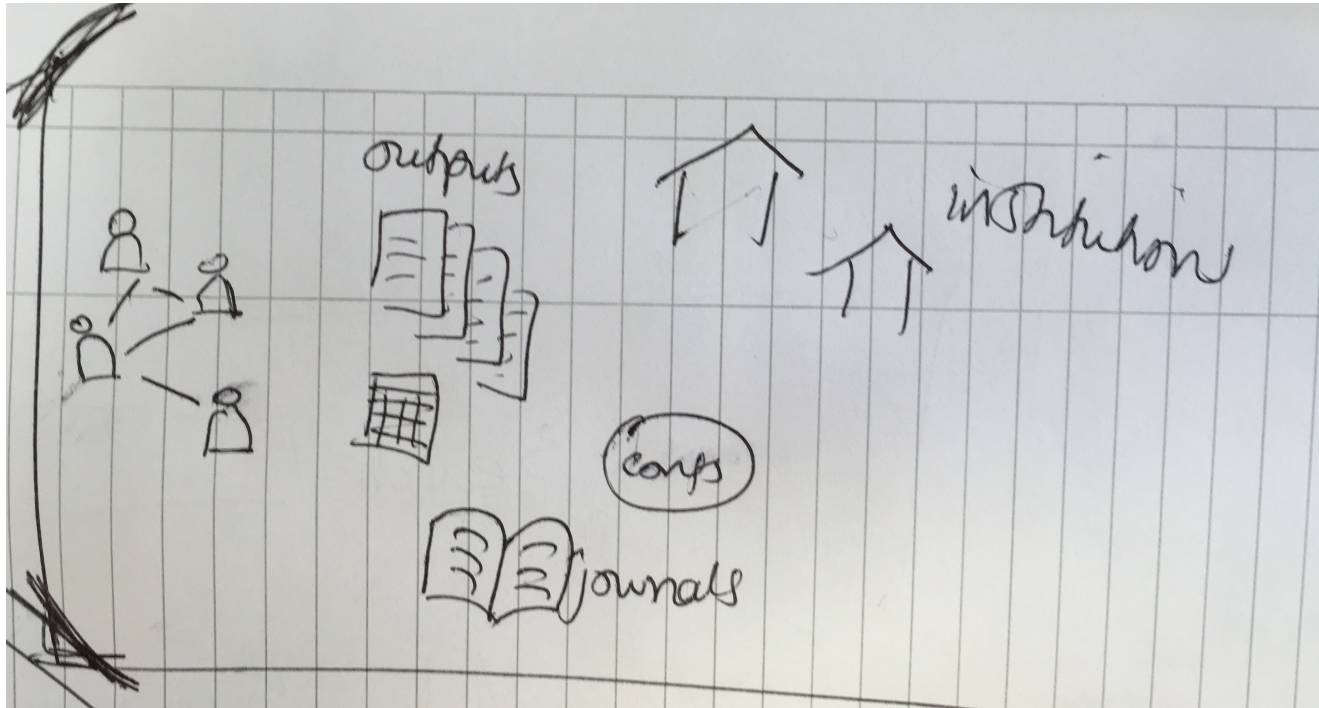 outputs
institution
confs
journals